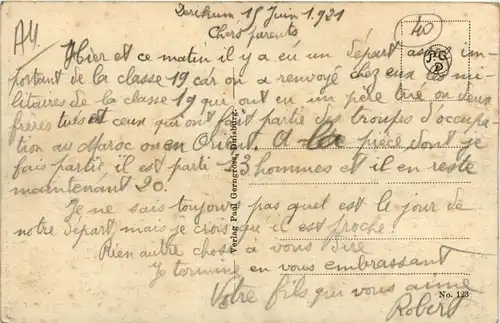 A4
15 Juin 1921
40
Chers parents
Hier et ce matin il y a eu un départ assez im
portant de la classe 19 car on a renvoyé chez eux les mi-
litaires de la classe 19 qui ont eu un père tué ou deux
frères tués et ceux qui ont fait partie des troupes d'occupa
tion au Maroc ou en Orient. A la pièce dont je
fais partie il est parti 3 hommes et il en reste
maintenant 20.
Je ne sais toujours pas quel est le jour de
notre départ mais je crois qu'il est proche
Rien autre chose à vous dire
Je termine en vous embrassant
Votre fils qui vous aime
Robert
Verlag Paul Gerngross, Duisburg.
No. 123